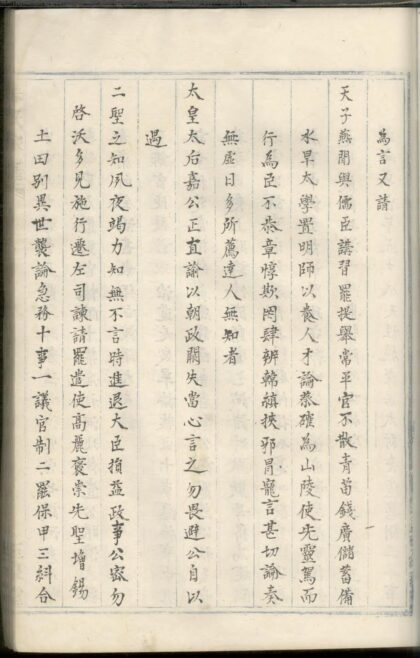 為言又請
天子燕閒與儒臣講習罷提舉常平官不散青苗錢廣儲蓄備
水旱太學置明師以養人才論蔡確為山陵使先靈駕而
行為臣不恭章惇欺罔肆辨韓縝挾邪冒寵言甚切論奏
無虛日多所薦達人無知者
太皇太后嘉公正直諭以朝政闕失當心言之勿畏避公自以
遇
二聖之知夙夜竭力知無不言時進退大臣損益政事公密勿
啓沃多見施行遷左司諫請罷遣使高麗褒崇先聖增錫
土田別異世襲論急務十事一議官制二罷保甲三糾合